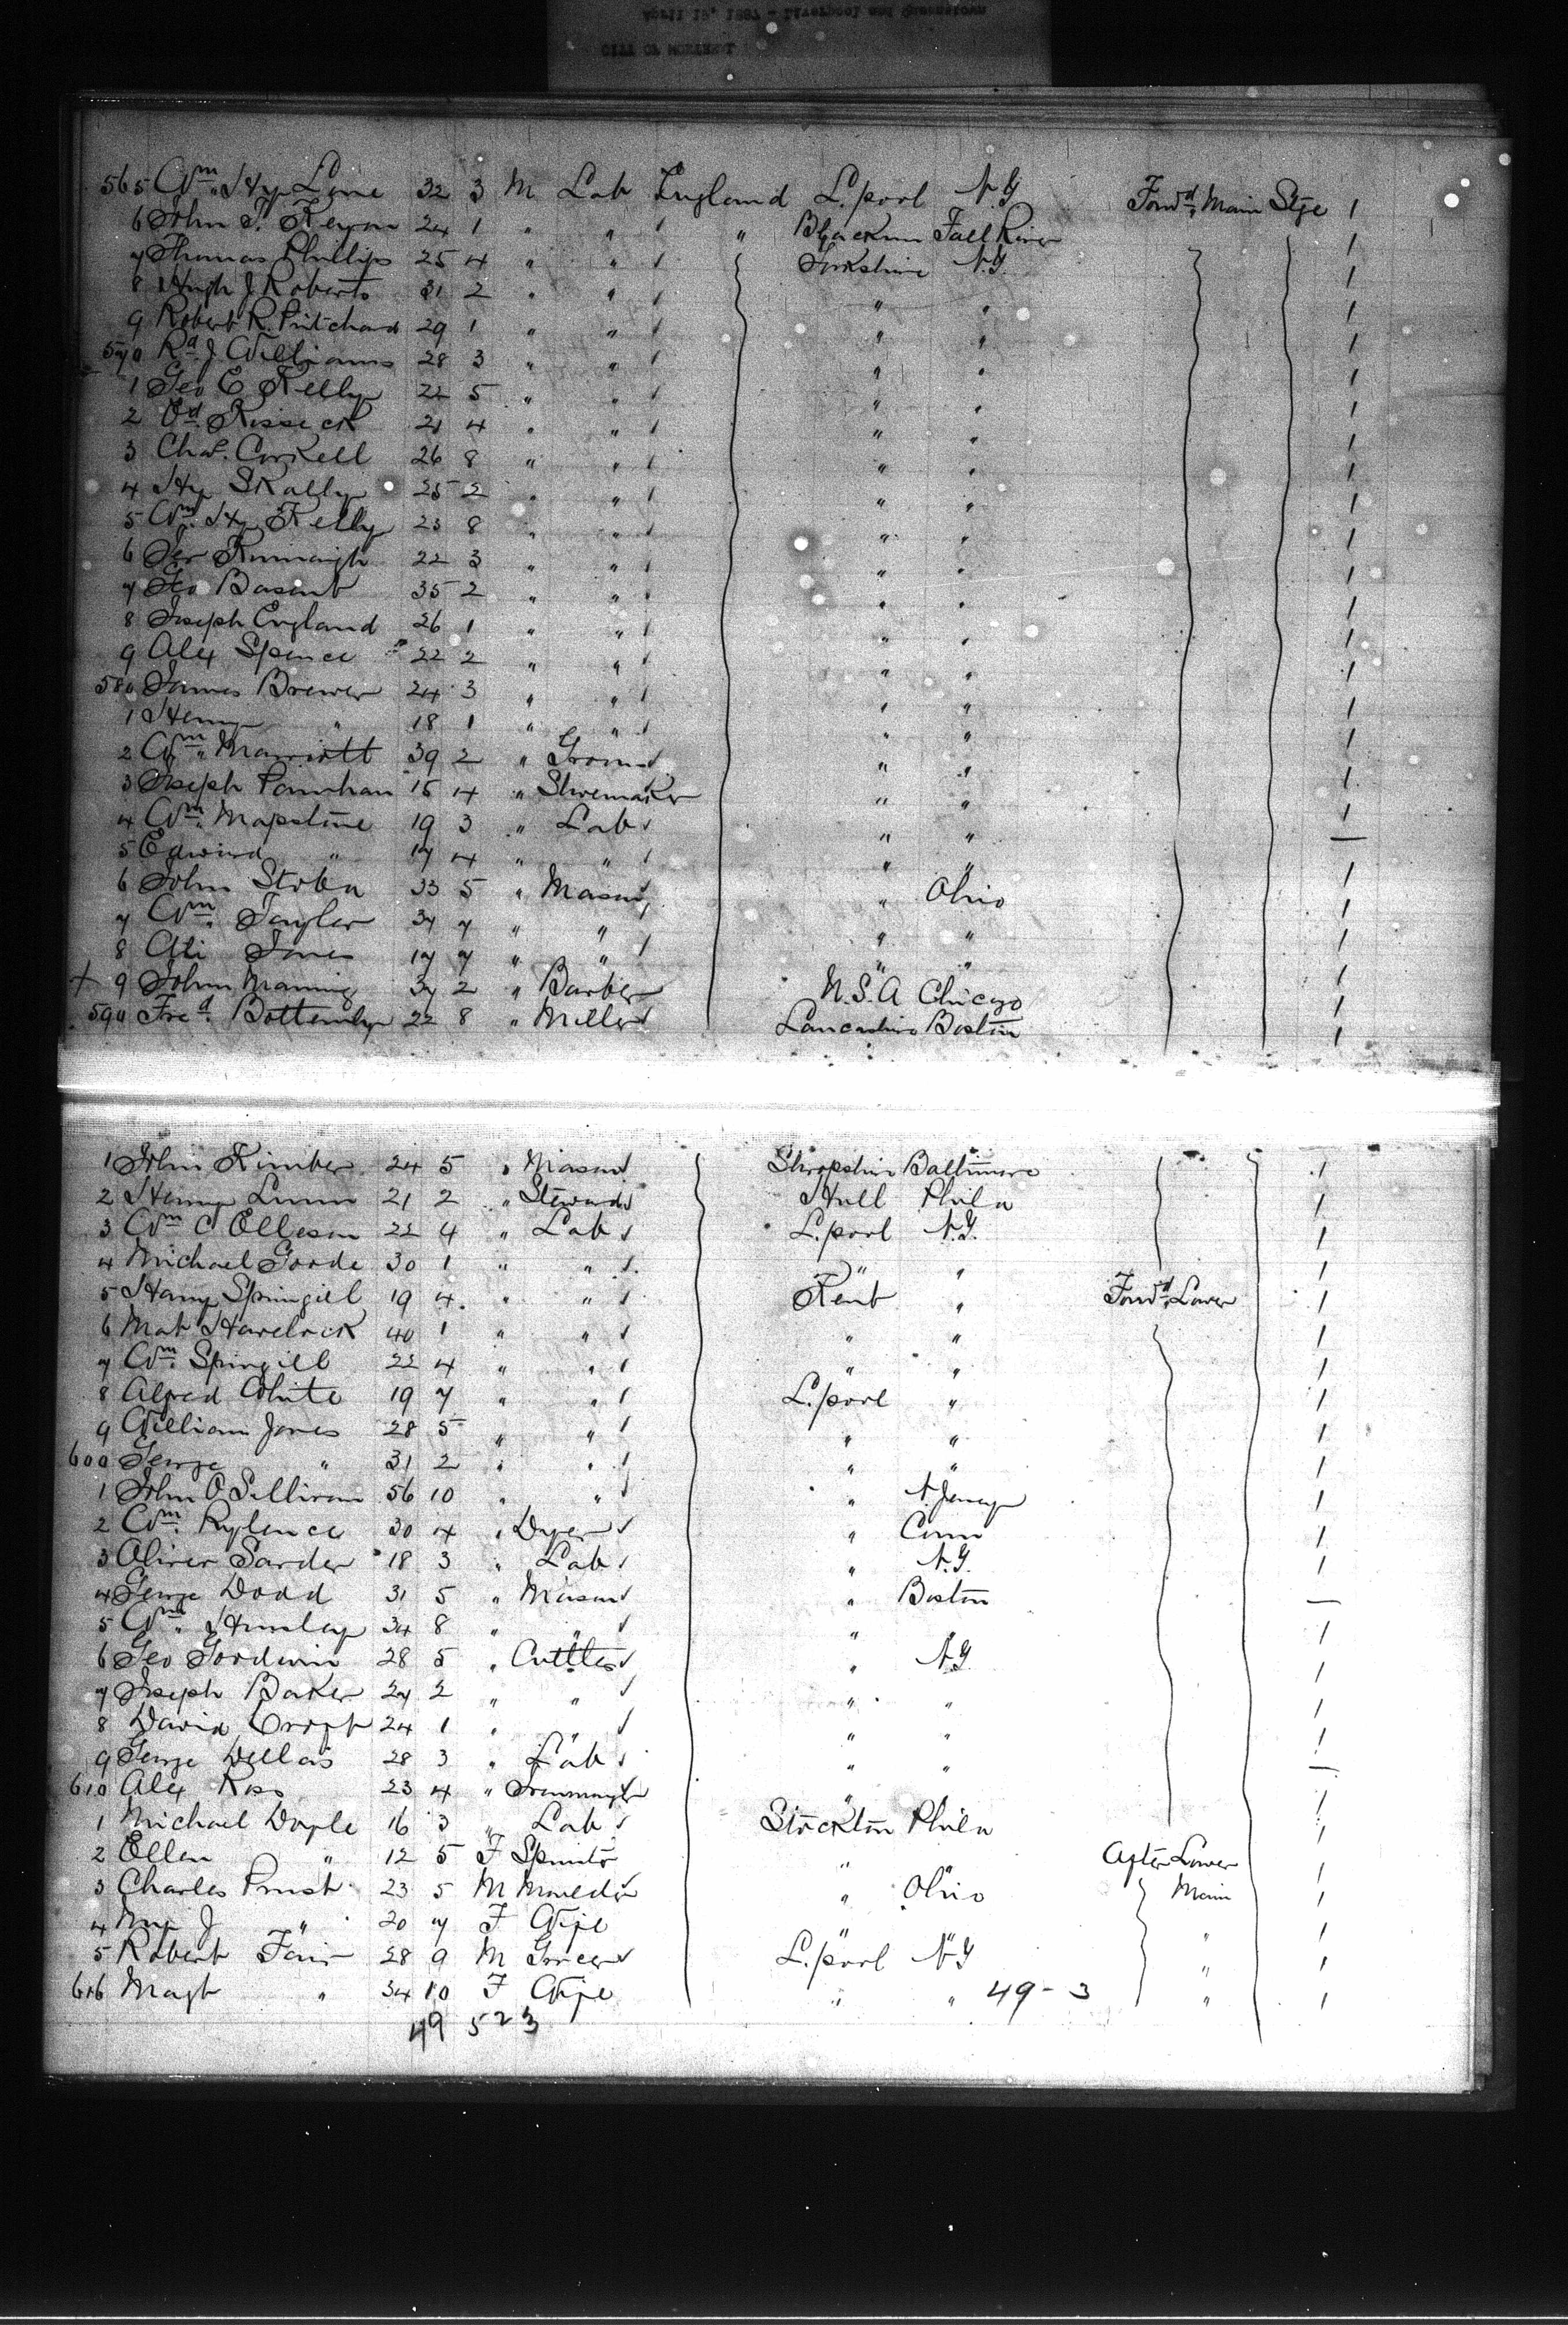 April 15, 1887 - Liverpool and Queenstown
CITY OF
565 Wm Hy Lane 32 3 M Lab England L.pool N.Y Forwd Main Stge 1
6 John T. Kenyon 24 1 " " " Blackburn Fall River 1
7 Thomas Phillips 25 4 " " Yorkshire N.Y. 1
8 Hugh J Roberts 31 2 " " " " 1
9 Robert R. Pritchard 29 1 " " " " 1
570 Rd J Williams 28 3 " " " " 1
1 Geo E Kelly 22 5 " " " " 1
2 Ed Kissack 21 4 " " " " 1
3 Chas. Corkell 26 8 " " " " 1
4 Hy Skally 25 2 " " " " 1
5 Wm Hy Kelly 23 8 " " " " 1
6 22 3 " " " " 1
7 Geo Basant 35 2 " " " " 1
8 Joseph England 26 1 " " " " 1
9 Alex Spence 22 2 " " " " 1
580 James Brewer 24 3 " " " " 1
1 Henry " 18 1 " " " " 1
2 Wm Marriott 39 2 " Groom " " 1
3 Joseph 15 4 " Shoemaker " " 1
4 Wm Mapstone 19 3 " Lab " " —
5 Edward " 17 4 " " " " 1
6 John 33 5 " Mason " Ohio 1
7 Wm Taylor 37 7 " " " " 1
8 Ali Jones 17 7 " " " " 1
+ 9 John Maning 37 2 " Barber U.S.A Chicago 1
590 Fred Bottomley 22 8 " Miller Lancashire Boston 1
1 John Kimber 24 5 " Mason Shropshire Baltimore 1
2 Henry Lunn 21 2 " Steward Hull Phila 1
3 Wm C Elleson 22 4 " Lab L.pool N.Y. 1
4 Michael Goode 30 1 " " " " 1
5 Harry Springiel 19 4 " " Kent " Forwd Lower 1
6 Mat Havelock 40 1 " " " " 1
7 Wm Springiel 22 4 " " " " 1
8 Alfred White 19 7 " " L.pool " 1
9 William Jones 28 5 " " " " 1
600 George " 31 2 " " " " 1
1 John O Sullivan 56 10 " " " N. Jersey 1
2 Wm Rylance 30 4 " Dyer " Conn 1
3 Oliver Sarder 18 3 " Lab " N.Y. 1
4 George Dodd 31 5 " Mason " Boston —
5 Wm 34 8 " " " " 1
6 Geo Goodwin 28 5 " Cuttler " N.Y 1
7 Joseph Baker 27 2 " " " " 1
8 David Croft 24 1 " " " " 1
9 George 28 3 " Lab " " —
610 Alex Ross 23 4 " Ironmonger " " 1
1 Michael Doyle 16 3 " Lab Stockton Phila 1
2 Ellen " 12 5 F Spinster " " After Lower 1
3 Charles Prust 23 5 M Moulder " Ohio Main 1
4 J " 20 7 F Wife " " " 1
5 Robert Fair 28 9 M Grocer L.pool N.Y " 1
616 Magt " 34 10 F Wife " " 49 - 3 " 1
49 523